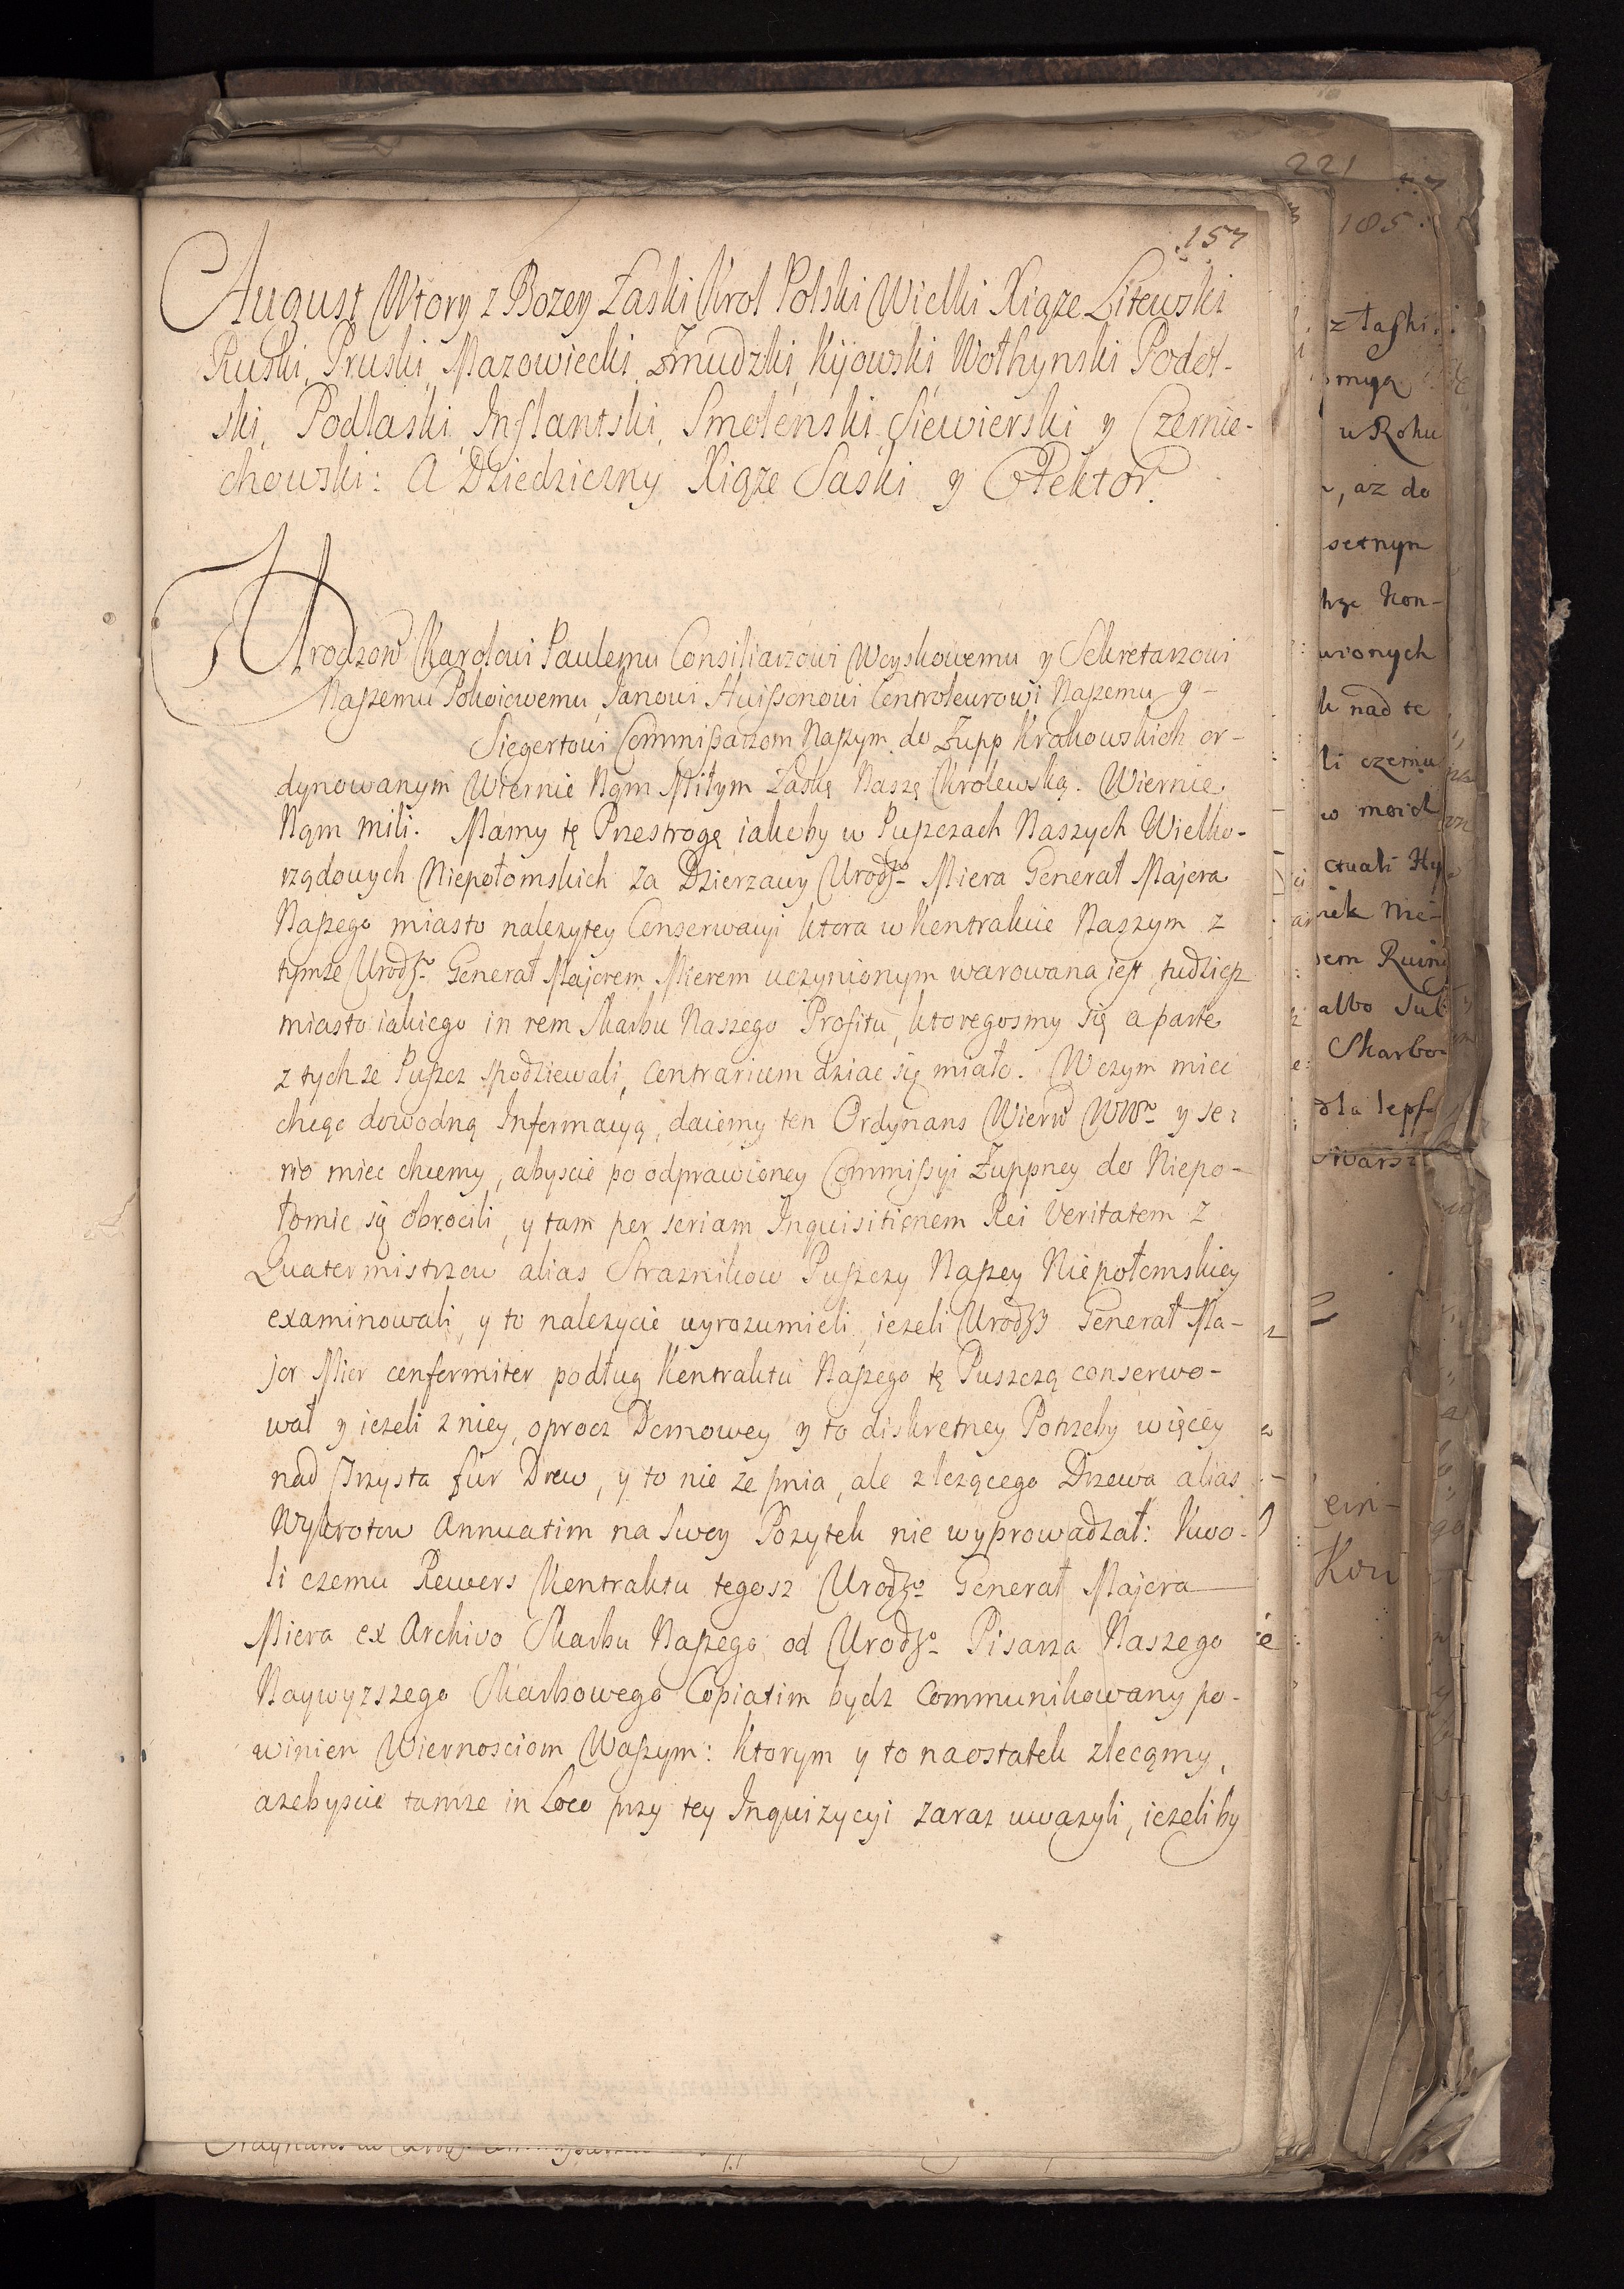 157
August Wtory z Bozey Łaski Krol Polski Wielki Xiąze Litewski
Ruski, Pruski, Mazowiecki, Żmudzki, Kijowski, Wołhynski Podol-
ski, Podlaski, Inflantski, Smolenski, Siewierski y Czernie-
chowski: A Dziedziczny Xiąze Saski y Elektor.
Urodzon Karolowi Paulemu Consiliarzowi Woyskowemu y Sekretarzowi
Naszemu Pokoiowemu, Janowi Huissonowi Controleurowi Naszemu y -
Siegertowi Commissarzom Naszym do Żupp Krakowskich or-
dynowanym Wiernie Nąm Miłym Łaskę Naszę Krolewską. Wiernie
Nąm mili. Mamy tę Przestrogę iakoby w Puszczach Naszych Wielko-
rządowych Niepołomskich za Dzierzawy Urodzo Miera Generał Majora
Naszego miasto nalezytey Conserwacyi ktora w Kontrakcie Naszym z
tymze Urodzm Generał Majorem Mierem uczynionym warowana jest, tudziesz
miasto iakiego in rem Skarbu Naszego Profitu, ktoregosmy się aparte
z tych ze Puszcz spodziewali, Contrarium dziac się miało. W czym miec
chcąc dowodną Informacyą, daiemy ten Ordynans Wierno WWo y se:
rio miec chcemy, abyscie po odprawioney Commissyi Żuppney do Niepo-
łomic się obrocili, y tam per seriam Inquisitionem Rei Veritatem z
Quatermistrzow alias Straznikow Puszczy Naszey Niepołomskiey
examinowali, y to nalezycie wyrozumieli, iezeli Urodzy Generał Ma-
jor Mier conformiter podług Kontraktu Naszego tę Puszczą conserwo-
wał y iezeli z niey, oprocz Domowey y to diskretney Potrzeby więcey
nad Trzysta fur Drew, y to nie ze pnia, ale z lezącego Drzewa alias
Wykrotow Annuatim na swoy Pozytek nie wyprowadzał: Kwo-
li czemu Rewers Kontraktu tegosz Urodzo Generał Majora
Miera ex Archivo Skarbu Naszego od Urodzo Pisarza Naszego
Naywyzszego Skarbowego Copiatim bydz communikowany po-
winien Wiernosciom Waszym: Ktorym y to naostatek zlecąmy,
azebyscie tamze in Loco przy tey Inquizycyi zaraz uwazyli, iezeli by
221
185
z łaski
u Roku
, az do
setnym
Kon-
wionych
nad te
li czemu
w moich
Ruin
albo Sub
Skarbo
dla lepsz
Kon